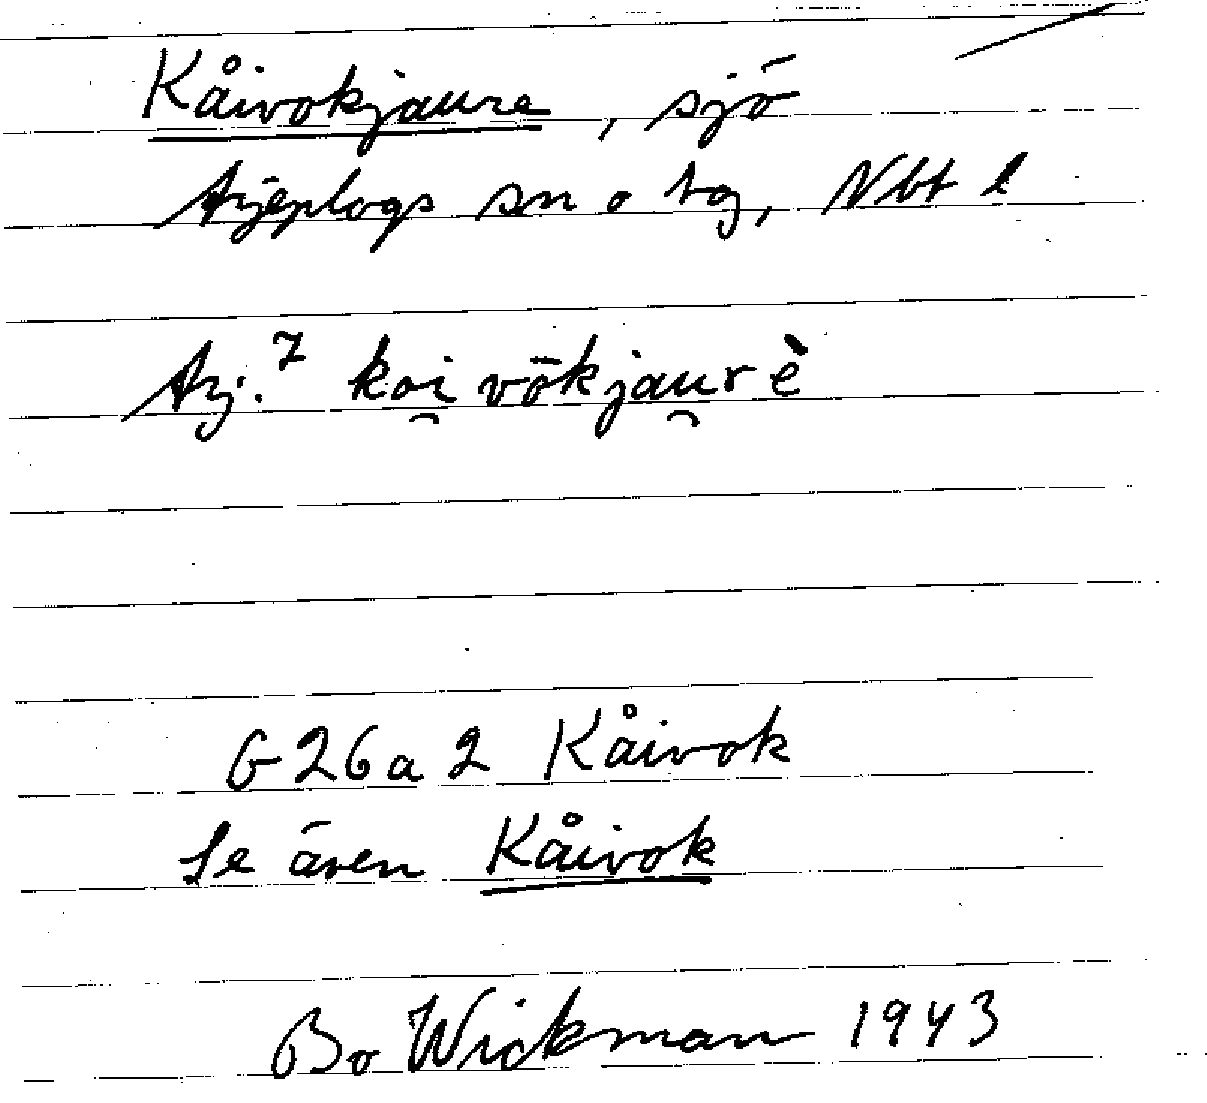 Kåivokjaure, sjö
Arjeplogs sn o tg, Nbt l
Arj.⁷ koi̯vōkjau̯rè
G 26 a 2 Kåivok
Se även Kåivok
Bo Wickman 1943